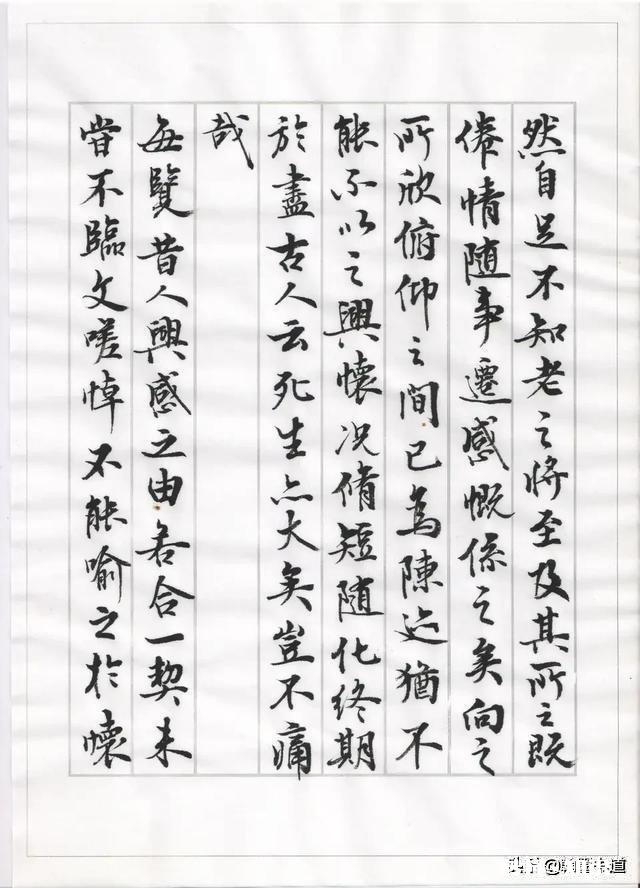 然自足不知老之将至及其所之既
倦情随事遷感慨係之矣向之
所欣俯仰之間已為陳迹猶不
能不以之興懷况脩短随化终期
於盡古人云死生亦大矣豈不痛
哉
每覽昔人興感之由若合一契未
嘗不臨文嗟悼不能喻之於懷